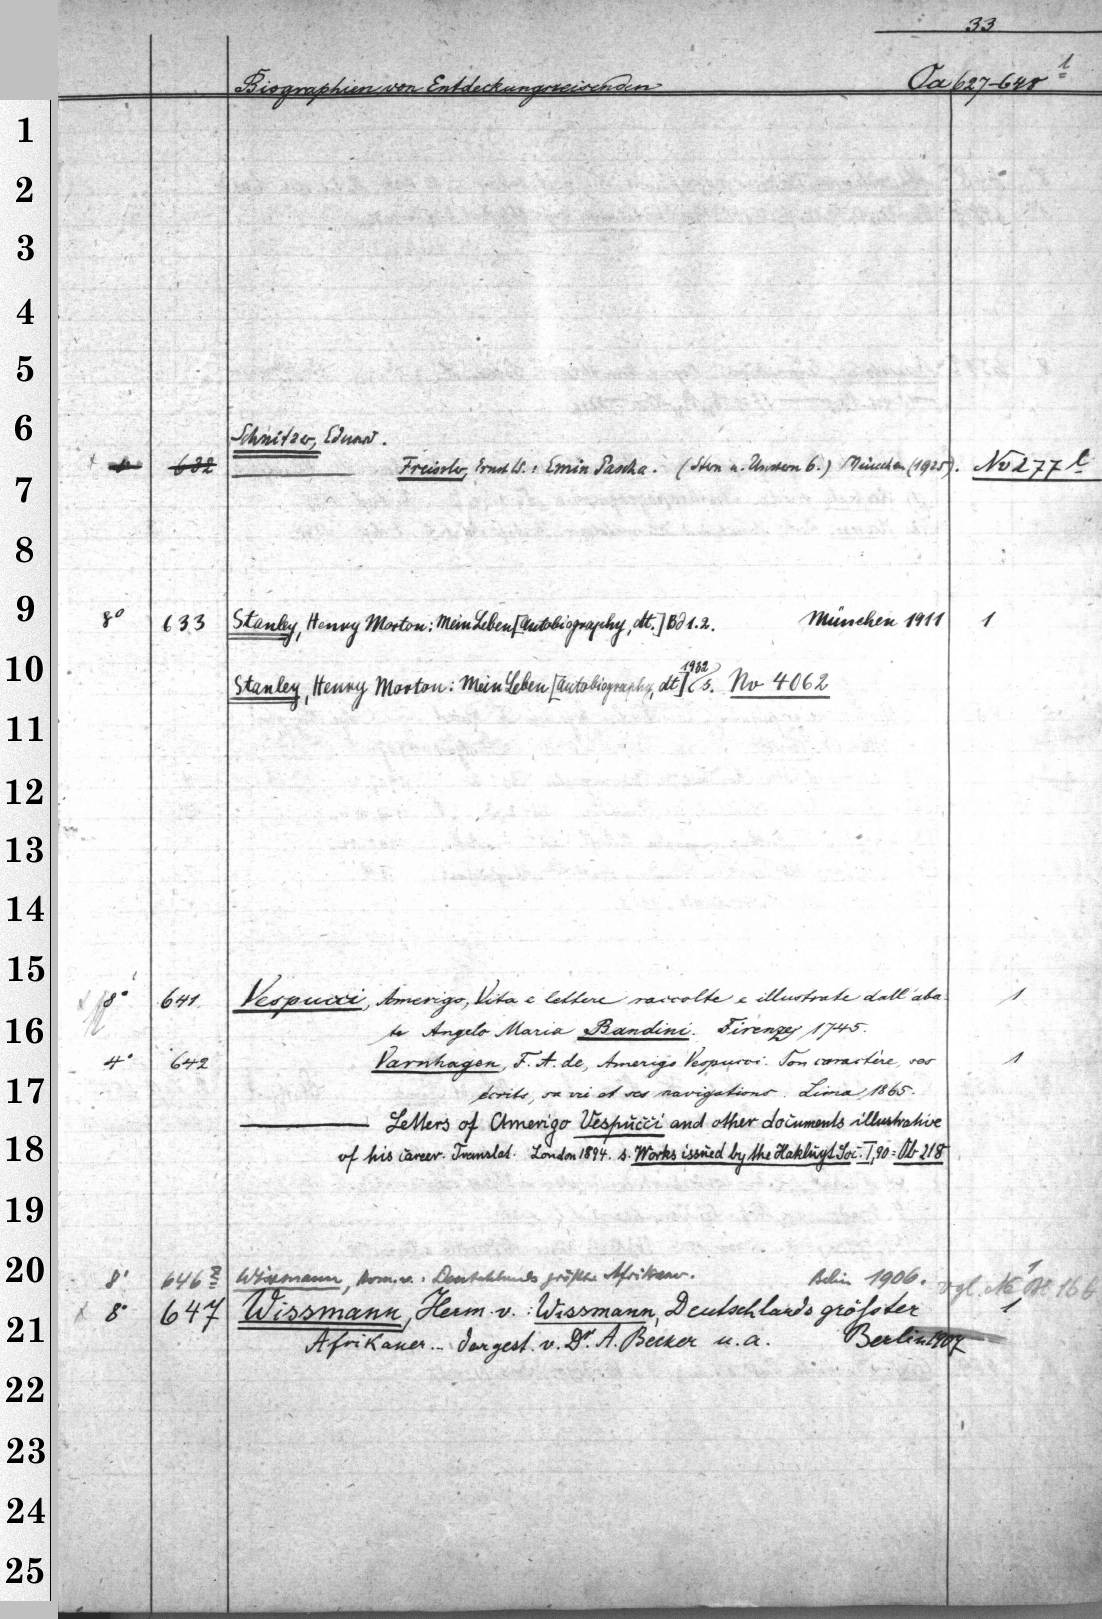 33
Biographien von Entdeckungsreisenden Oa 627-648 1
1
2
3
4
5
6
Schnitzer, Eduard.
632 Freissler, Ernst W.: Emin Pascha. (Stern u. Unstern 6.) München (1925). No 277 l
7
8
9
8° 633 Stanley, Henry Morton: Mein Leben [Autobiography, dt.] Bd 1.2. München 1911 1
10
Stanley, Henry Morton: Mein Leben [Autobiography, dt] (1932) S. No 4062
11
12
13
14
15
8° 641 Vespucci, Amerigo, Vita e lettere raccolte e illustrate dall' aba- 1
16
te Angelo Maria Bandini. Firenze, 1745.
4° 642 Varnhagen, F. A. de, Amerigo Vespucci. Son caractère, ses 1
17
écrits, sa vie et ses navigations. Lima, 1865.
Letters of Amerigo Vespucci and other documents illustrative
18
of his career. Translat. London 1894. s. Works issued by the Hakluyt Soc. I,90 = Ob 218
19
20
8° 646 Wissmann, Herm. v.: Deutschlands größter Afrikaner. Berlin 1906. 1
vgl. 166
8° 647 Wissmann, Herm. v.: Wissmann, Deutschlands größter 1
21
Afrikaner... dargest. v. Dr. A. Becker u. a. Berlin 1907
22
23
24
25